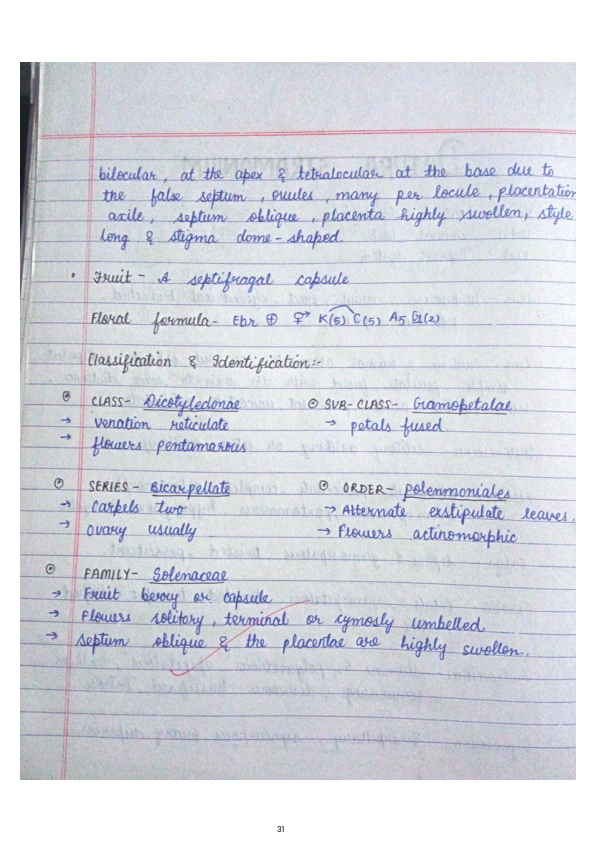 bilocular, at the apex & tetralocular at the base due to
the false septum, ovules, many per locule, placentation
axile, septum oblique, placenta highly swollen, style
long & stigma dome-shaped.
• Fruit - A septifragal capsule
Floral formula - Ebr ⊕ ⚥ K(5) C(5) A5 G(2)
Classification & Identification:-
⊙ CLASS- Dicotyledonae
→ venation reticulate
→ flowers pentamarous
⊙ SUB-CLASS- Gramopetalae
→ petals fused
⊙ SERIES- Bicarpellate
→ Carpels two
→ Ovary usually
⊙ ORDER- polenmoniales
→ Alternate exstipulate leaves.
→ Flowers actinomorphic
⊙ FAMILY- Solenaceae
→ Fruit berry or capsule
→ Flowers solitory, terminal or cymosly umbelled
→ Septum oblique & the placentae are highly swollen.
31